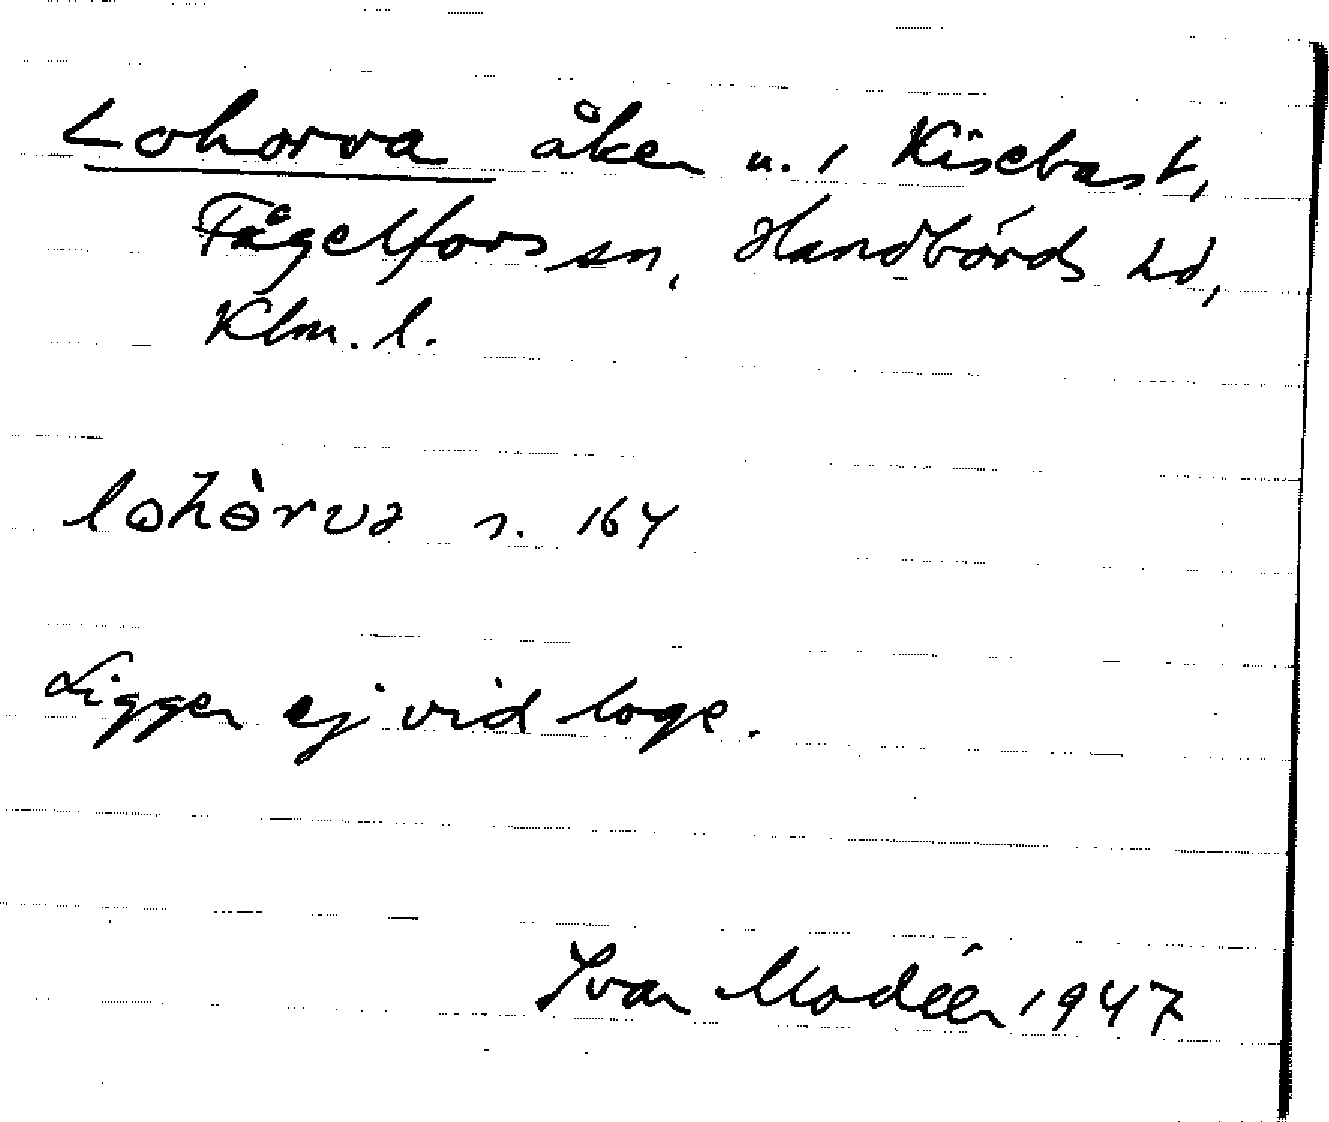 Lohorva åker u. 1 Kisebast,
Fågelfors sn, Handbörds hd,
Klm. l.
lohèrva s. 164
Ligger ej vid loge.
Ivar Modéer 1947